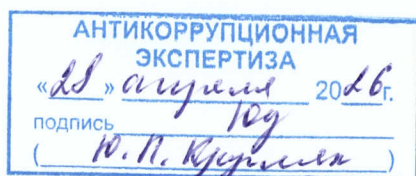 АНТИКОРРУПЦИОННАЯ
ЭКСПЕРТИЗА
«28» апреля 2026г.
подпись
(Ю. П. )